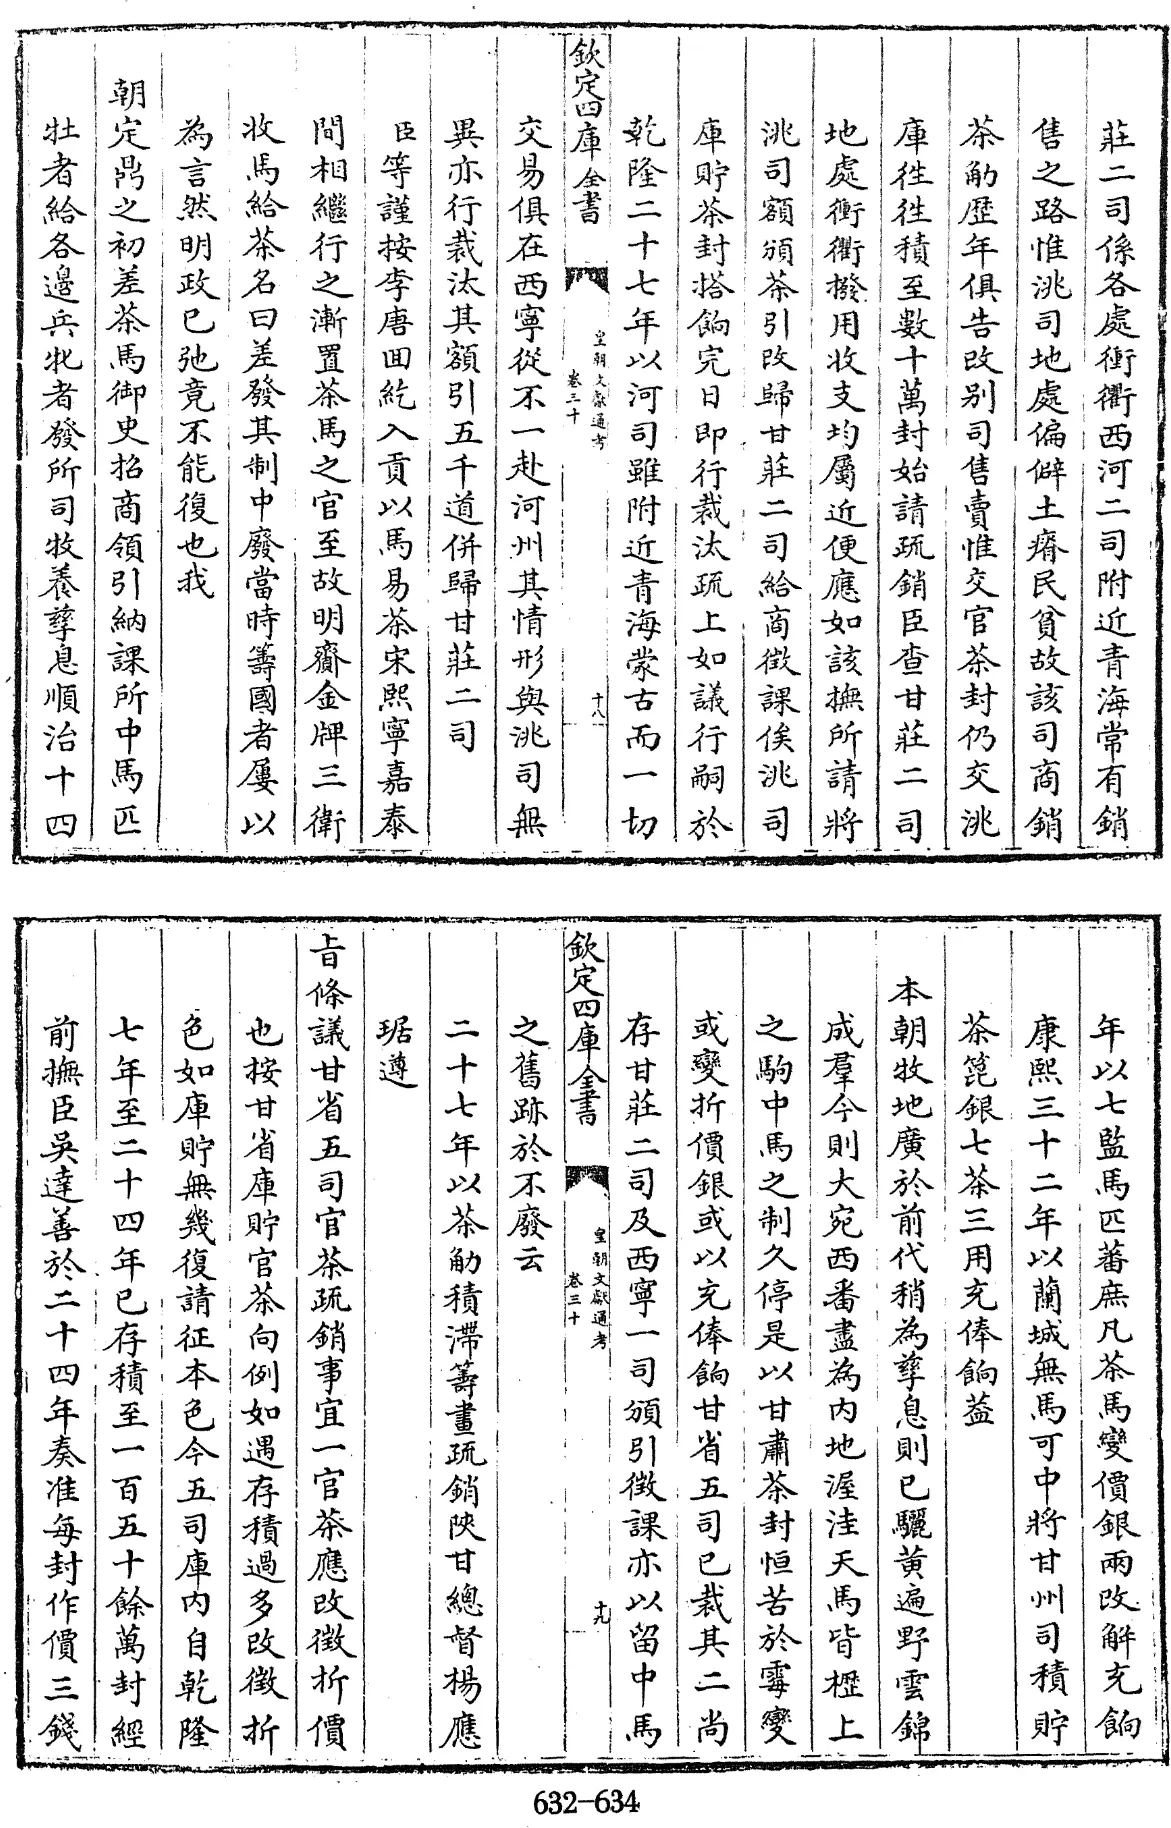 莊二司係各處衝衢西河二司附近青海常有銷
售之路惟洮司地處偏僻土瘠民貧故該司商銷
茶觔歷年俱告改别司售賣惟交官茶封仍交洮
庫徃徃積至數十萬封始請疏銷臣查甘莊二司
地處衝衢撥用收支均屬近便應如該撫所請將
洮司額頒茶引改歸甘莊二司給商徴課俟洮司
庫貯茶封搭餉完日即行裁汰疏上如議行嗣於
乾隆二十七年以河司雖附近青海蒙古而一切
欽定四庫全書
皇朝文獻通考
卷三十
十八
交易俱在西寧從不一赴河州其情形與洮司無
異亦行裁汰其額引五千道併歸甘莊二司
臣等謹按李唐回紇入貢以馬易茶宋熙寧嘉泰
間相繼行之漸置茶馬之官至故明齎金牌三衛
收馬給茶名曰差發其制中廢當時籌國者屢以
為言然明政已弛竟不能復也我
朝定鼎之初差茶馬御史招商領引納課所中馬匹
牡者給各邉兵牝者發所司牧養孳息順治十四
年以七監馬匹蕃庶凡茶馬變價銀兩改解充餉
康熙三十二年以蘭城無馬可中將甘州司積貯
茶箆銀七茶三用充俸餉蓋
本朝牧地廣於前代稍為孳息則已驪黄遍野雲錦
成羣今則大宛西番盡為内地渥洼天馬皆櫪上
之駒中馬之制久停是以甘肅茶封恒苦於霉變
或變折價銀或以充俸餉甘省五司已裁其二尚
存甘莊二司及西寧一司頒引徴課亦以留中馬
欽定四庫全書
皇朝文獻通考
卷三十
十九
之舊跡於不廢云
二十七年以茶觔積滯籌畫疏銷陜甘總督楊應
琚遵
旨條議甘省五司官茶疏銷事宜一官茶應改徴折價
也按甘省庫貯官茶向例如遇存積過多改徴折
色如庫貯無幾復請征本色今五司庫内自乾隆
七年至二十四年已存積至一百五十餘萬封經
前撫臣吳達善於二十四年奏准每封作價三錢
632-634